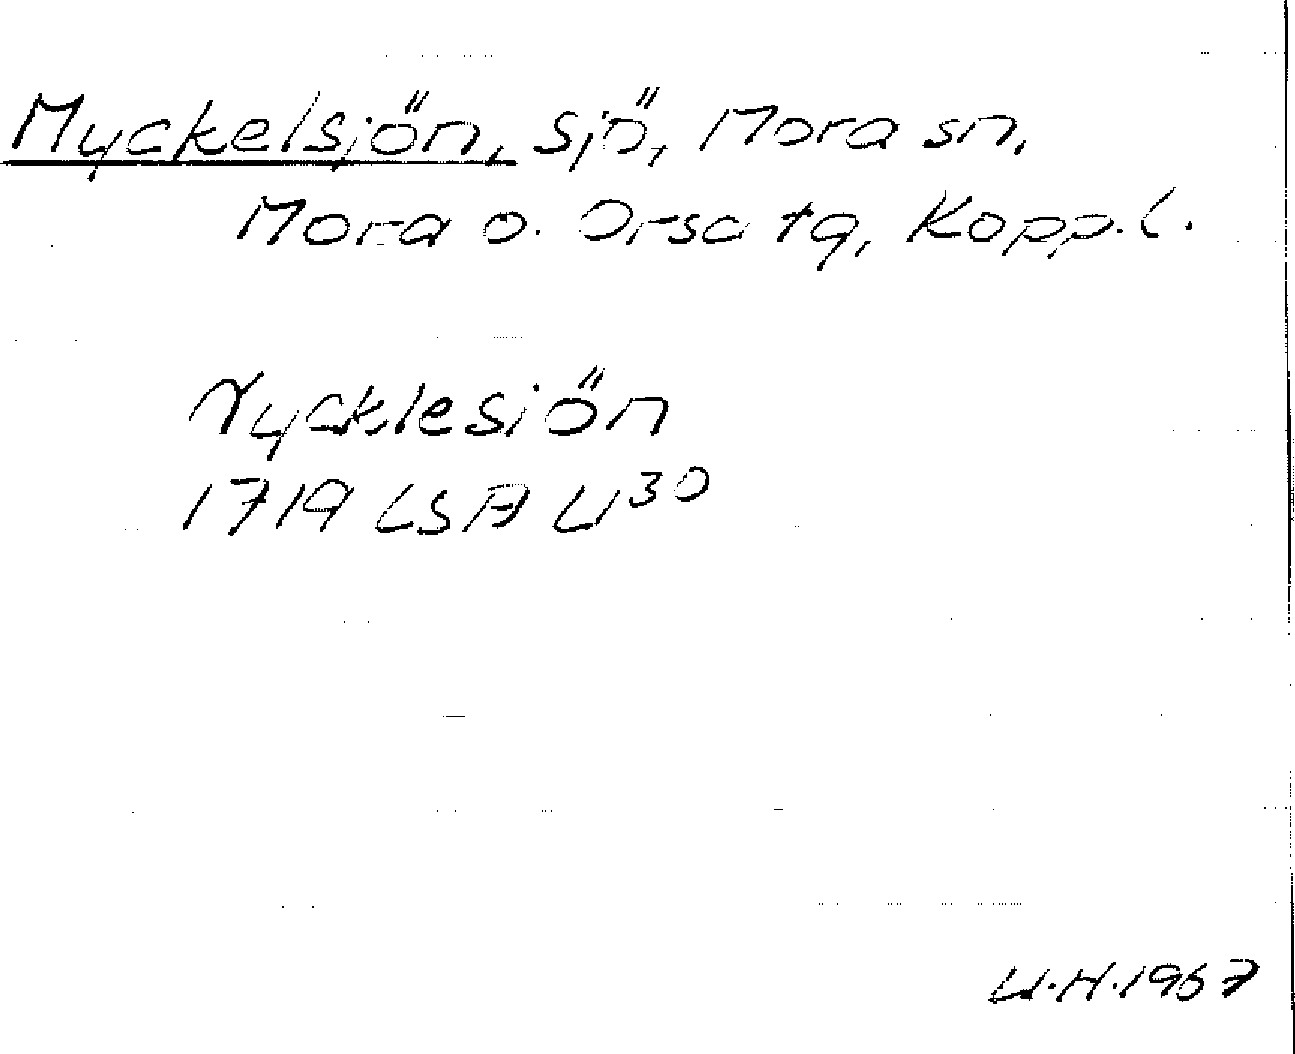 Myckelsjön, sjö, Mora sn,
Mora o. Orsa tg, Kopp. l.
Nycklesiön
1719 LSA U30
U.H. 1967